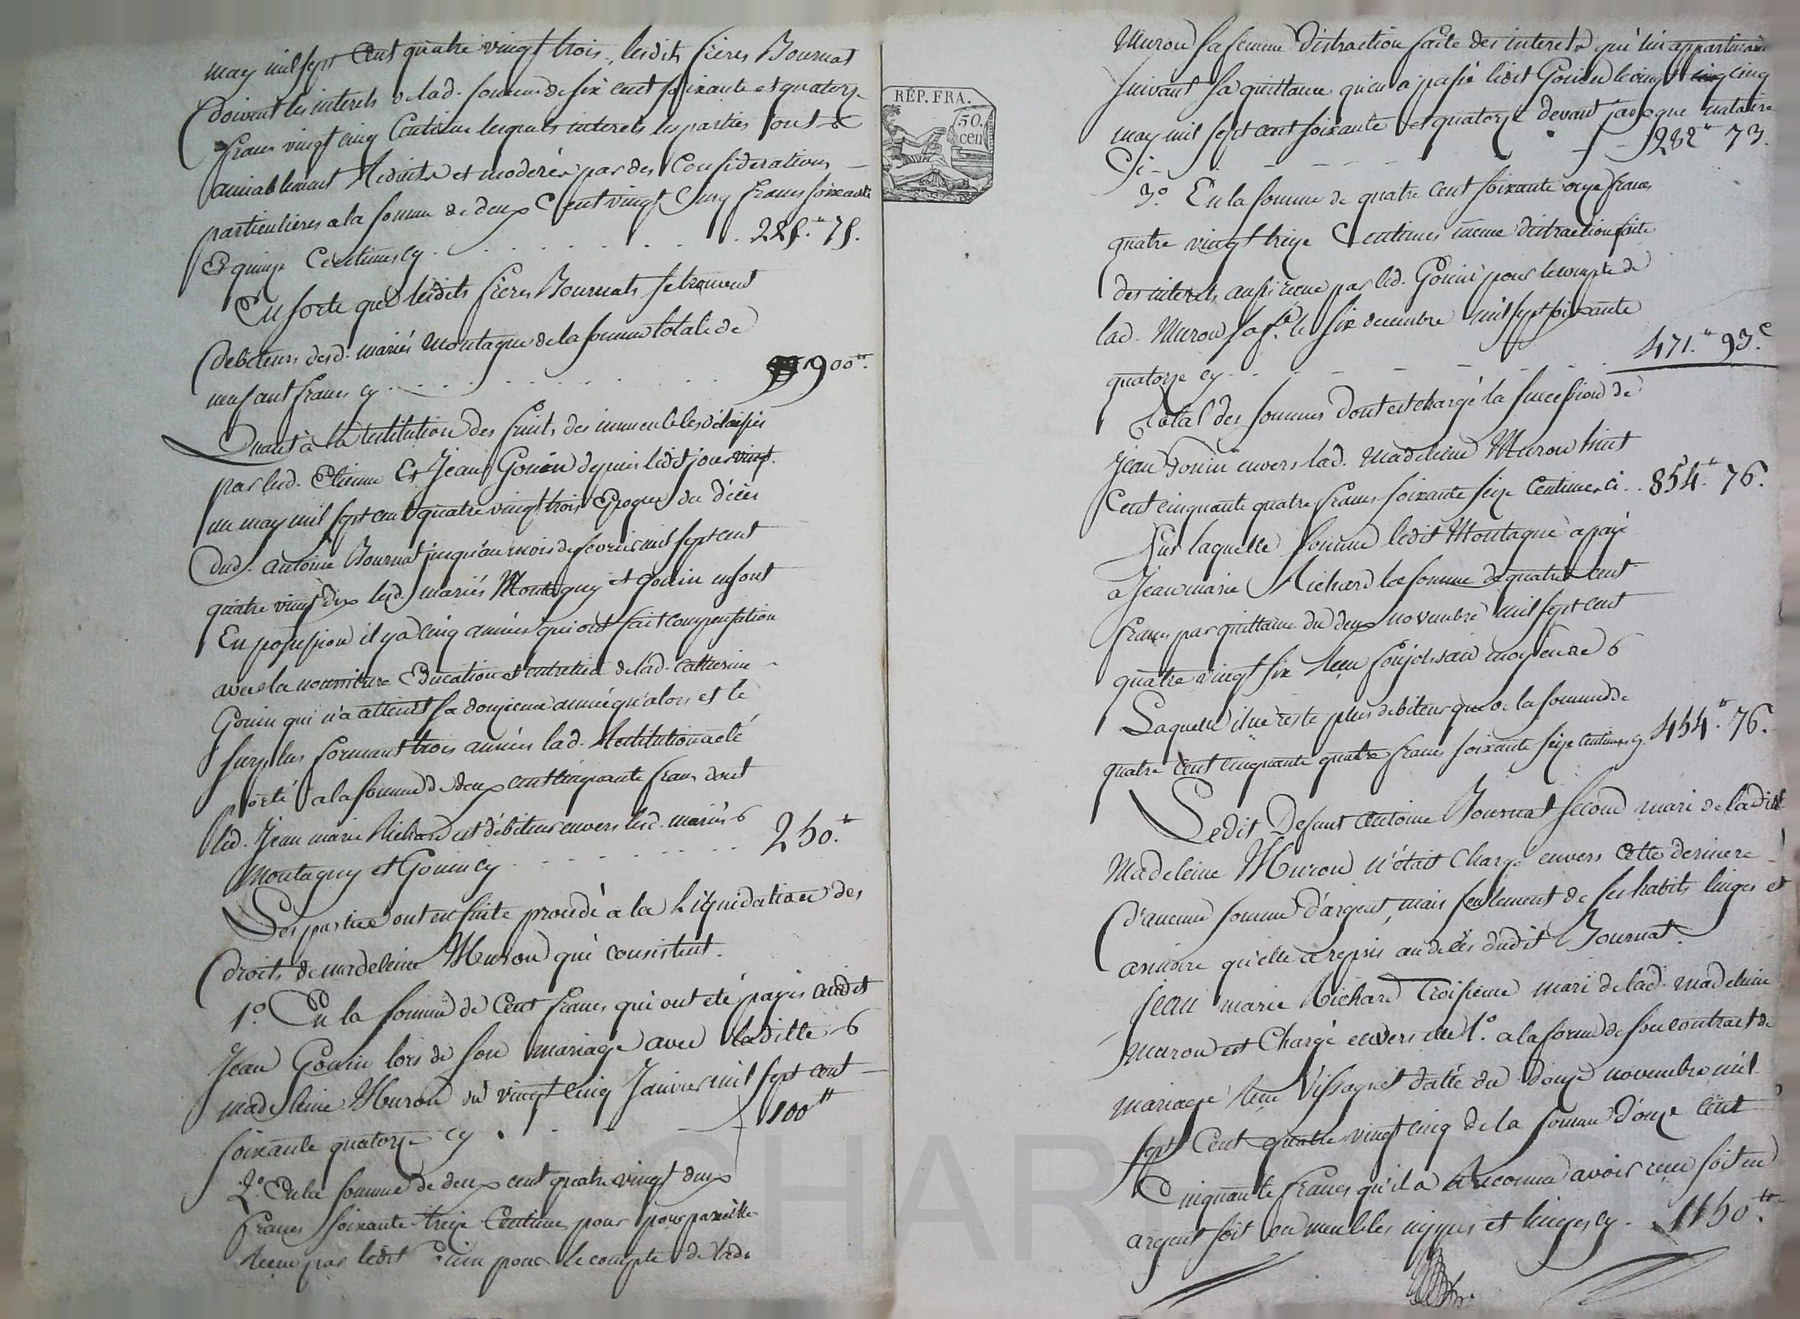 may mil sept Cent quatre vingt trois, lesdits frères Journat
doivent les interets de lad. somme de six cent soixante et quatorze
francs vingt cinq Centimes lesquels interets les parties ont
amiablement Réduits et modérés par des Considerations
particulieres a la somme de deux Cent vingt Cinq francs soixante
et quinze Centimes cy . . . . . . . . 225.tt 75.
En sorte que lesdits frères Journats se trouvent
debiteurs desd. mariés Montagne de la somme totale de
neuf cent francs cy . . . . . . . . 900tt.
Quant à la restitution des fruits des immeubles délaissés
par lesd. Etienne et Jean Gouin depuis ledit jour vingt
un may mil sept cent quatre vingt trois Epoque du décès
dud. antoine Journat jusqu'au mois de fevrier mil sept cent
quatre vingt dix lesd. mariés Montagny et Gouin en sont
En possession il y a cinq années qui ont fait compensation
avec la nourriture Education et entretien de lad. Catherine
Gouin qui n'a atteint sa douzieme année qu'alors et le
surplus formant trois années lad. Restitution a été
porté a la somme de deux cent cinquante francs dont
led. Jean marie Richard est débiteur envers lesd. mariés
Montagny et Gouin cy . . . . . . . . 250.tt
Les parties ont ensuite procédé a la Liquidation des
droits de madeleine Muron qui consistent.
1.o En la somme de Cent francs qui ont été payés audit
Jean Gouin lors de son mariage avec ladille
madeleine Muron du vingt cinq Janvier mil sept cent
soixante quatorze cy . - - - - 100tt
2.o En la somme de deux cent quatre vingt deux
francs soixante treize Centimes pour pour pareille
Reçue par ledit Gouin pour le compte de lade
RÉP. FRA.
50.
cen
Muron sa femme distraction faite des interets qui lui appartenaient
suivant sa quittance qu'en a passé ledit Gouin le vingt cinq cinq
may mil sept cent soixante et quatorze devant notaire
Ci - - - - - - 282tt 73.
3.o En la somme de quatre cent soixante onze francs
quatre vingt treize Centimes meme distraction faite
des interets aussi reçue par led. Gouin pour le compte de
lad. Muron sa fe. le six decembre mil sept soixante
quatorze cy . - - - - - 471.tt 93.c
Total des sommes dont est chargé la succession de
Jean Gouin envers lad. madeleine Muron huit
Cent cinquante quatre francs soixante seize Centimes ci . . 854.tt 76.
Sur laquelle somme ledit Montagne a payé
a Jean marie Richard la somme de quatre cent
francs par quittance du deux novembre mil sept cent
quatre vingt six Reçu moyenne
Laquelle il ne reste plus debiteur que de la somme de
quatre cent cinquante quatre francs soixante seize Centimes cy. 454.tt 76.
Ledit Defunt Antoine Journat second mari de ladite
Madeleine Muron n'était Chargé envers Cette derniere
d'aucune somme d'argent, mais seulement de ses habits linges et
armoire qu'elle a repris au décès dudit Journat.
Jean marie Richard Troisième mari de lad. madeleine
Muron est Chargé envers elle 1.o a la forme de son contract de
mariage Reçu Vissaguet datée du douze novembre mil
sept Cent quatre vingt cinq de la somme d'onze Cent
Cinquante francs qu'il a Reconnu avoir reçu soit en
argent soit en meubles nippes et linges cy . 1150.tt